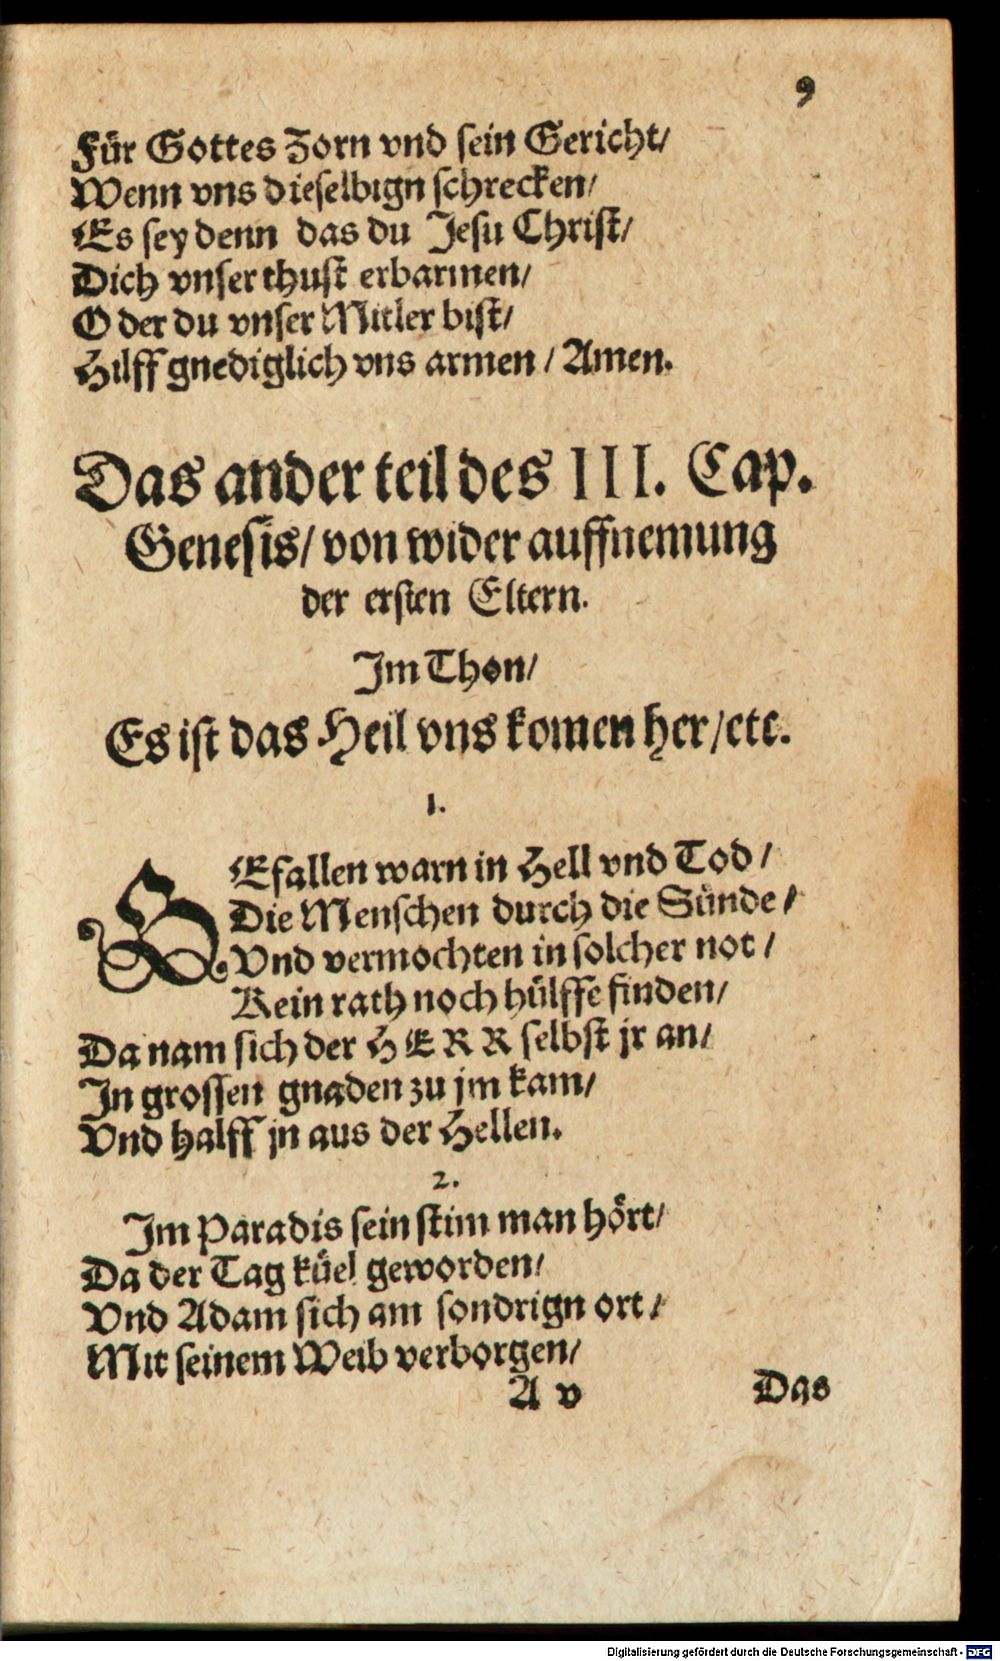 9
Für Gottes Zorn vnd sein Gericht/
Wenn vns dieselbign schrecken/
Es sey denn das du Jesu Christ/
Dich vnser thust erbarmen/
O der du vnser Mitler bist/
Hilff gnediglich vns armen / Amen.
Das ander teil des III. Cap.
Genesis/ von wider auffnemung
der ersten Eltern.
Im Thon/
Es ist das Heil vns komen her/etc.
1.
GEfallen warn in Hell vnd Tod /
Die Menschen durch die Sünde /
Vnd vermochten in solcher not /
Kein rath noch hülffe finden/
Da nam sich der HERR selbst jr an/
In grossen gnaden zu jm kam/
Vnd halff jn aus der Hellen.
2.
Im Paradis sein stim man hört/
Da der Tag küel geworden/
Vnd Adam sich am sondrign ort /
Mit seinem Weib verborgen/
A v Das
Digitalisierung gefördert durch die Deutsche Forschungsgemeinschaft - DFG